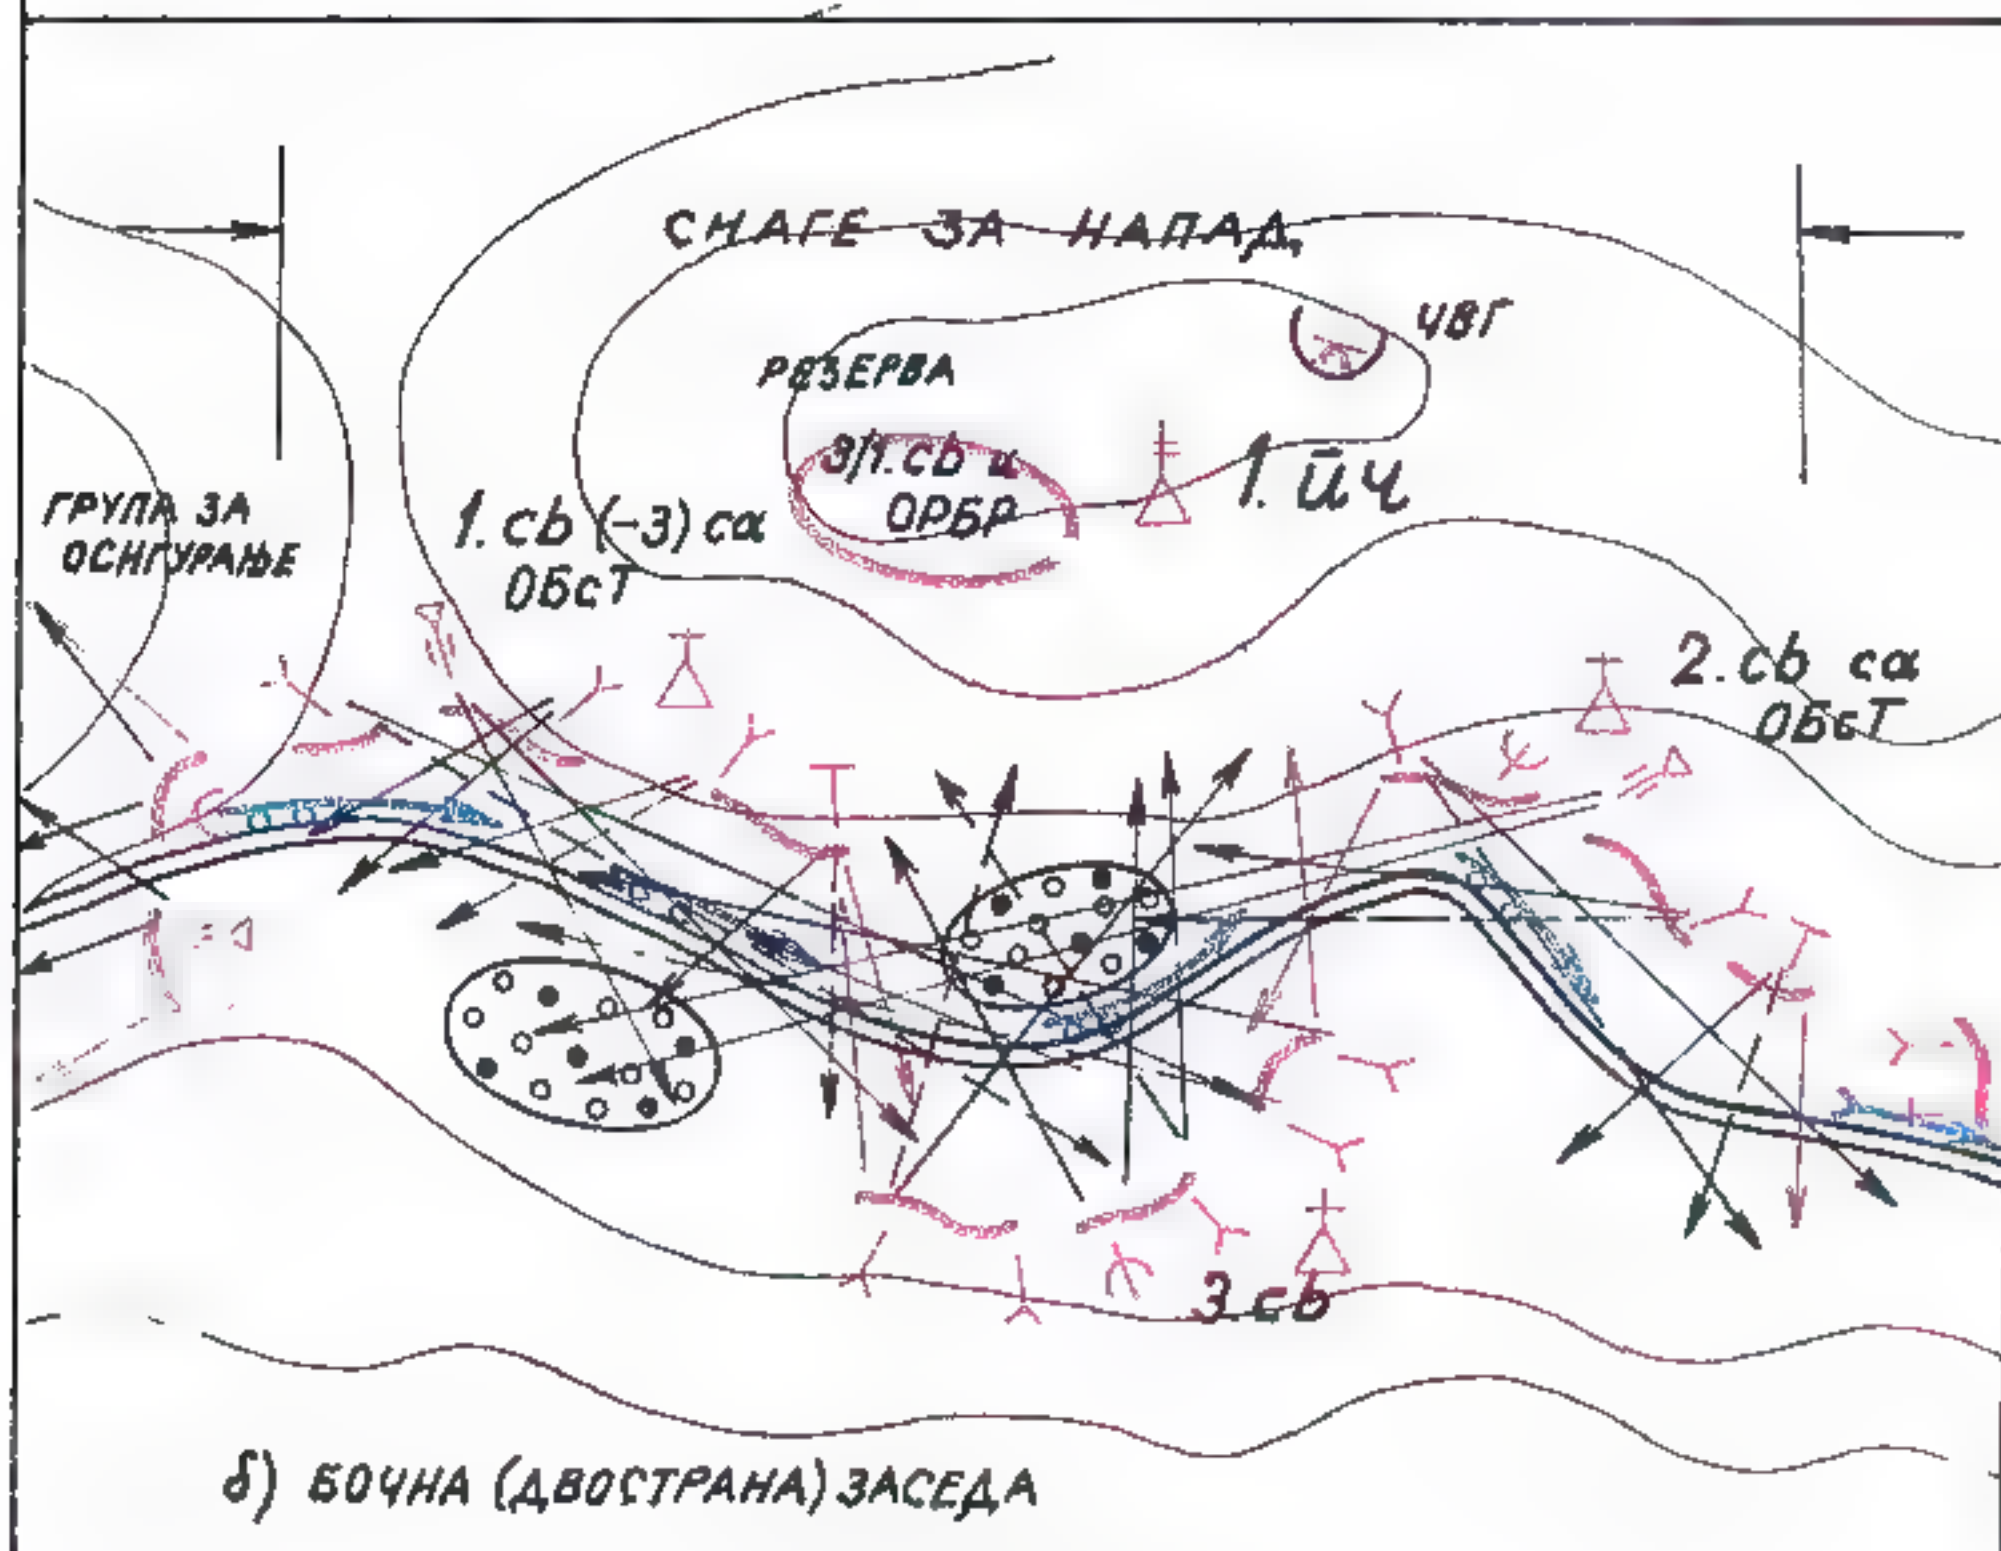 СНАГЕ ЗА НАПАД
ЧВГ
РЕЗЕРВА
3/1. св и
ОРБР
1. ūч
ГРУПА ЗА
ОСИГУРАЊЕ
1. св (-3) са
ОБсТ
2. св са
ОБсТ
3. св
б) БОЧНА (ДВОСТРАНА) ЗАСЕДА